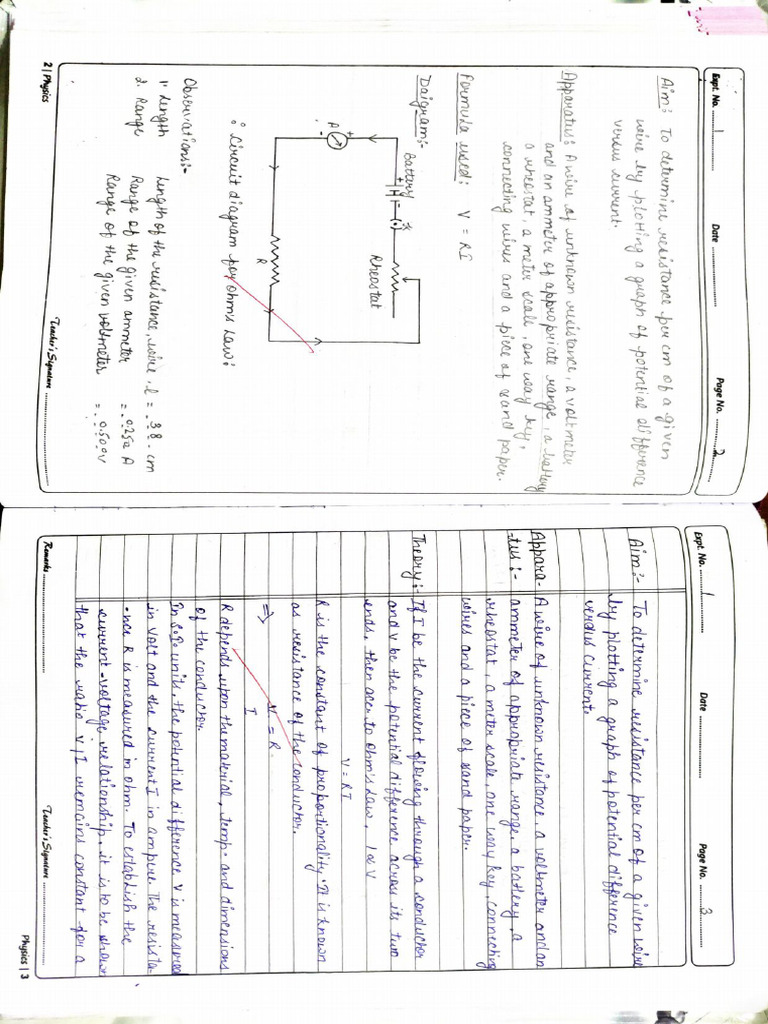 Expt. No. 1 Date Page No. 2
Aim:- To determine resistance per cm of a given
wire by plotting a graph of potential difference
versus current.
Apparatus:- A wire of unknown resistance, a voltmeter
and an ammeter of appropriate range, a battery
a rheostat, a meter scale, one way key,
connecting wires and a piece of sand paper.
Formula used:- V = RI
Daigram:-
Battery
Rheostat
A
R
Circuit diagram for ohms law:
Observations:-
1. Length Length of the resistance, wire, l = 38. cm
2. Range Range of the given ammeter = 0.25a A
Range of the given voltmeter = 0.50gv
2 | Physics Teacher's Signature
Expt. No. 1 Date Page No. 3
Aim:- To determine resistance per cm of a given wire
by plotting a graph of potential difference
versus current.
Appara- A wire of unknown resistance, a voltmeter and an
-tus:- ammeter of appropriate range, a battery, a
rheostat, a meter scale, one way key, connecting
wires and a piece of sand paper.
Theory:- If I be the current flowing through a conductor
and V be the potential difference across its two
ends, then acen to ohm's Law, I ∝ V
V = RI
R is the constant of proportionality. It is known
as resistance of the conductor.
⇒ V = R.
I
R depends upon the material, temp. and dimensions
of the conductor.
In S.I. units, the potential difference V is measured
in Volt and the current I in ampere. The resista-
-nce R is measured in ohm. To establish the
current-voltage relationship, it is to be shown
that the ratio V/I remains constant for a
Remarks Teacher's Signature
Physics | 3